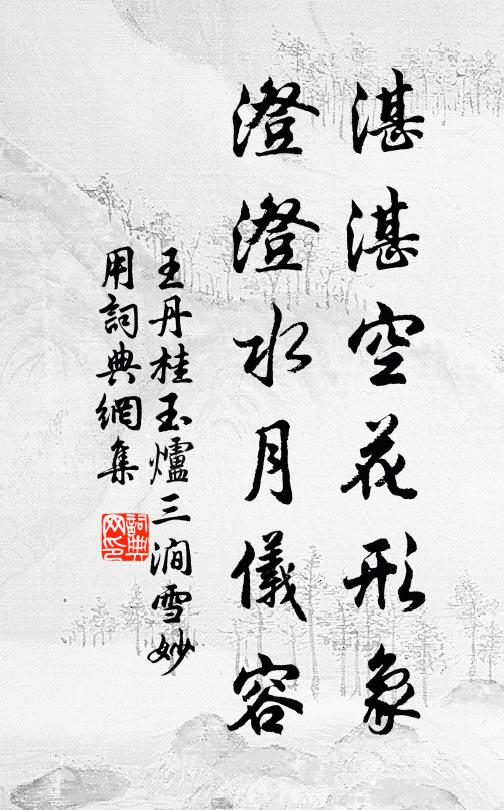 湛湛空花形象
澄澄水月儀容
王丹桂玉爐三澗雪妙
用詞典網集
詞典
网印